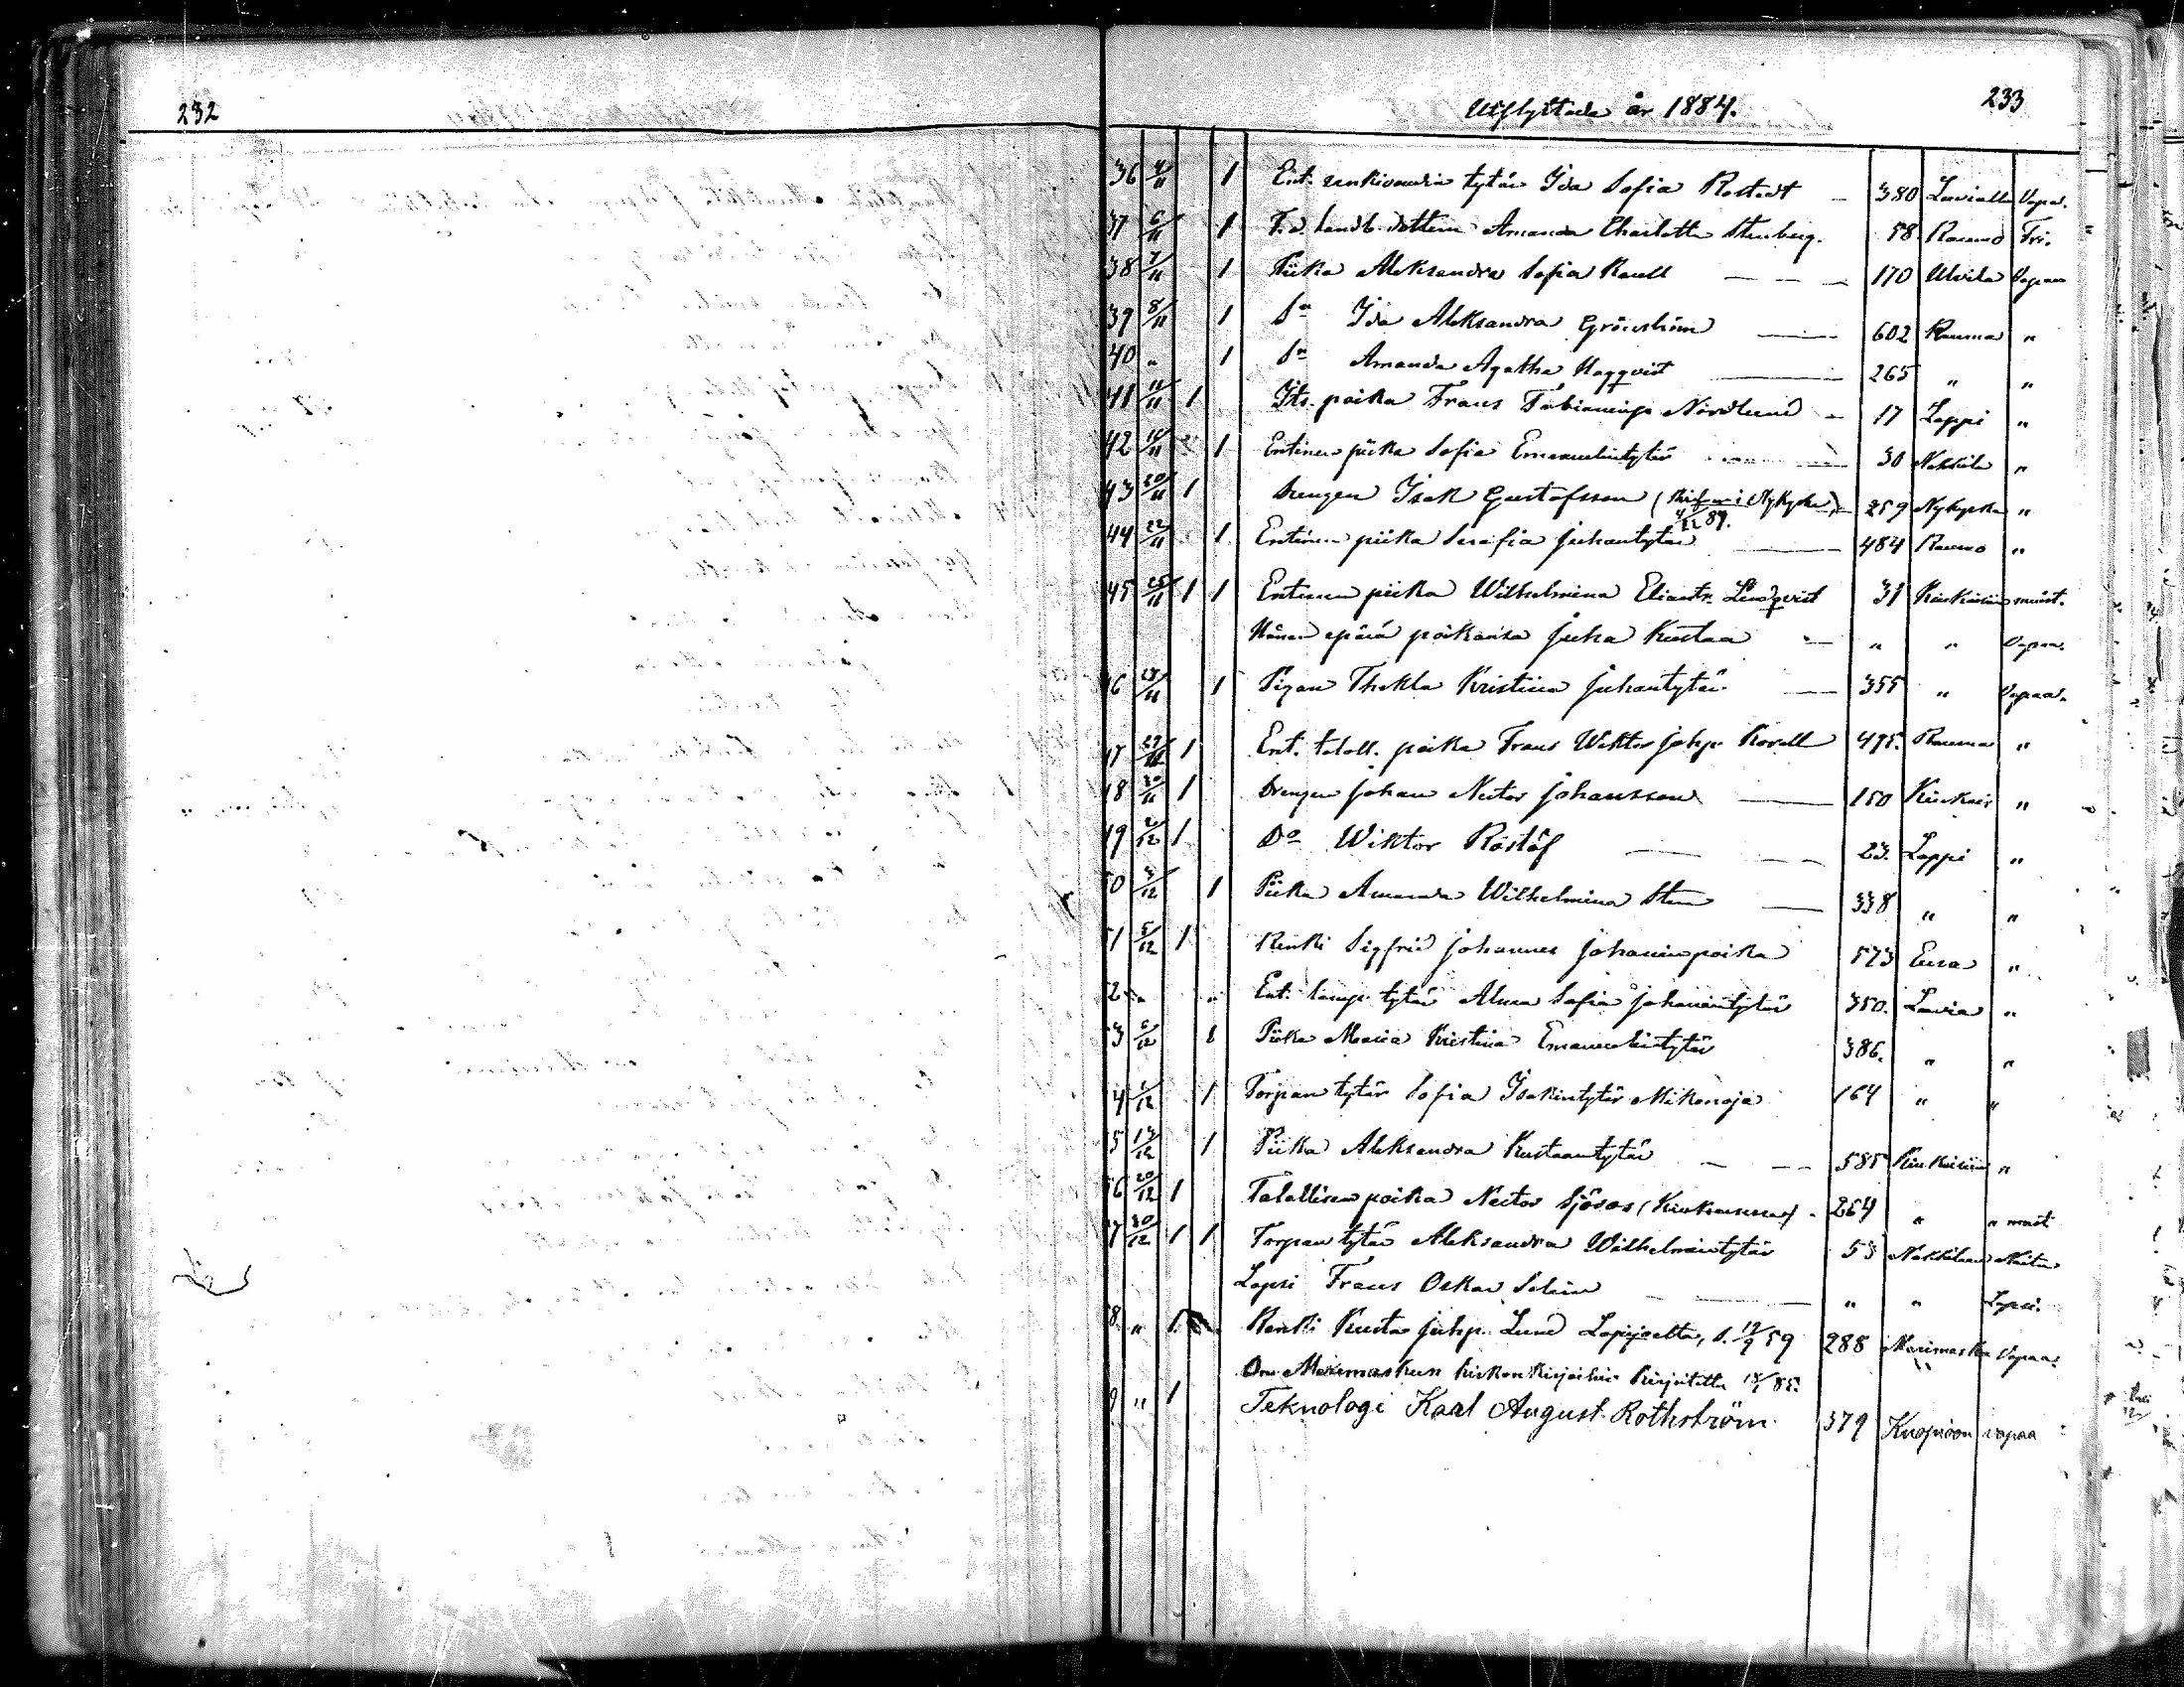 232
Utflyttade år 1884. 233
36 4/11 1 Ent. renkivoudin tytär Ida Sofia Rostedt 380 Lavialle Vapa.
37 6/11 1 F.d. landb. dottern Amanda Charlotta Stenberg. 58 Raumo Fri.
38 7/11 1 Piika Aleksandra Sofia Raell 170 Ulvila Vapaa
39 8/11 1 Do Ida Aleksandra Grönström 602 Rauma "
40 " 1 Do Amanda Agatha Haggqvist 265 " "
41 11/11 1 Its. poika Frans Fabianinp. Nordlund 17 Lappi "
42 1 Entinen piika Sofia Emanuelintytär 30 Nakkila "
43 20/11 1 Drengen Isak Gustafsson ( Nykyrka) 259 Nykyrka "
44 22/11 1 Entinen piika Serafia Juhantytär 484 Raumo "
45 25/11 1 1 Entinen piika Wilhelmina Eliantr. Lindqvist 31 Kiukaisiin muist.
Hänen epärä poikansa Juha Kustaa " " Vapaa.
6 28/11 1 Pigan Thekla Kristiina Juhantytär 355 " Vapaa.
7 29/11 1 Ent. taloll. poika Frans Wiktor Johp. Korell 495. Rauma "
8 30/11 1 Drengen Johan Nestor Johansson 150 Kiukais "
9 2/12 1 Do Wiktor Röstöf 23. Lappi "
0 3/12 1 Piika Amanda Wilhelmina Sten 338 " "
1 5/12 1 Renki Sigfrid Johannes Johaninpoika 573 Eura "
2 " " Ent. lamp. tytär Alma Sofia Johanintytär 350. Lavia "
3 6/12 1 Piika Maria Kristiina Emanuelintytär 386. " "
4 1 Torpan tytär Sofia Isakintytär Mikonoja 164 " "
5 13/12 1 Piika Aleksandra Kustaantytär 585 Kiukaisiin "
6 20/12 1 Talollisen poika Nestor Sjöroos (Kiukaisissa) 264 " " muist
7 30/12 1 1 Torpan tytär Aleksandra Wilhelmintytär 53 Nakkilaan Naitu
Lapsi Frans Oskar Selim " " Lapsi.
8 " 1. Renki Kustaa Juhp. Lund Lapijoelta, s. 12/9 59 288 Merimasku Vapaa.
On Merimaskun kirkonkirjoihin kirjoitettu 85.
9 " 1 Teknologi Kaarl August Rothström 379 Kuopioon vapaa